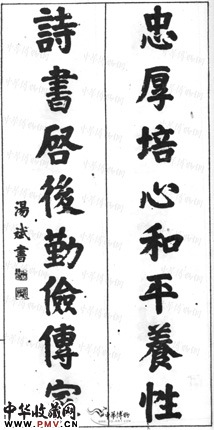 忠厚培心和平養性
詩書啓後勤儉傳家
湯斌書
中华收藏网
www.PMV.cn
中華博物